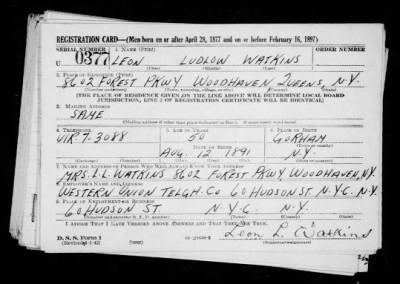 REGISTRATION CARD—(Men born on or after April 28, 1877 and on or before February 16, 1897)
SERIAL NUMBER 1. NAME (Print) ORDER NUMBER
U 0377 LEON LUDLOW WATKINS
2. PLACE OF RESIDENCE (Print)
8602 FOREST PKWY WOODHAVEN QUEENS, N.Y.
(Number and street) (Town, township, village, or city) (County) (State)
[THE PLACE OF RESIDENCE GIVEN ON THE LINE ABOVE WILL DETERMINE LOCAL BOARD
JURISDICTION; LINE 2 OF REGISTRATION CERTIFICATE WILL BE IDENTICAL]
3. MAILING ADDRESS
SAME
4. TELEPHONE 5. AGE IN YEARS 6. PLACE OF BIRTH
VIR. 7-3088 50 GORHAM
AUG. 12 1891 N.Y.
7. NAME AND ADDRESS OF PERSON WHO WILL ALWAYS KNOW YOUR ADDRESS
MRS. L.L. WATKINS 8602 FOREST PKWY, WOODHAVEN, N.Y.
8. EMPLOYER'S NAME AND ADDRESS
WESTERN UNION TELGH. CO 60 HUDSON ST. N.Y.C. N.Y.
9. PLACE OF EMPLOYMENT OR BUSINESS
60 HUDSON ST. N.Y.C. N.Y.
I AFFIRM THAT I HAVE VERIFIED ABOVE ANSWERS AND THAT THEY ARE TRUE.
D. S. S. Form 1
Leon L. Watkins